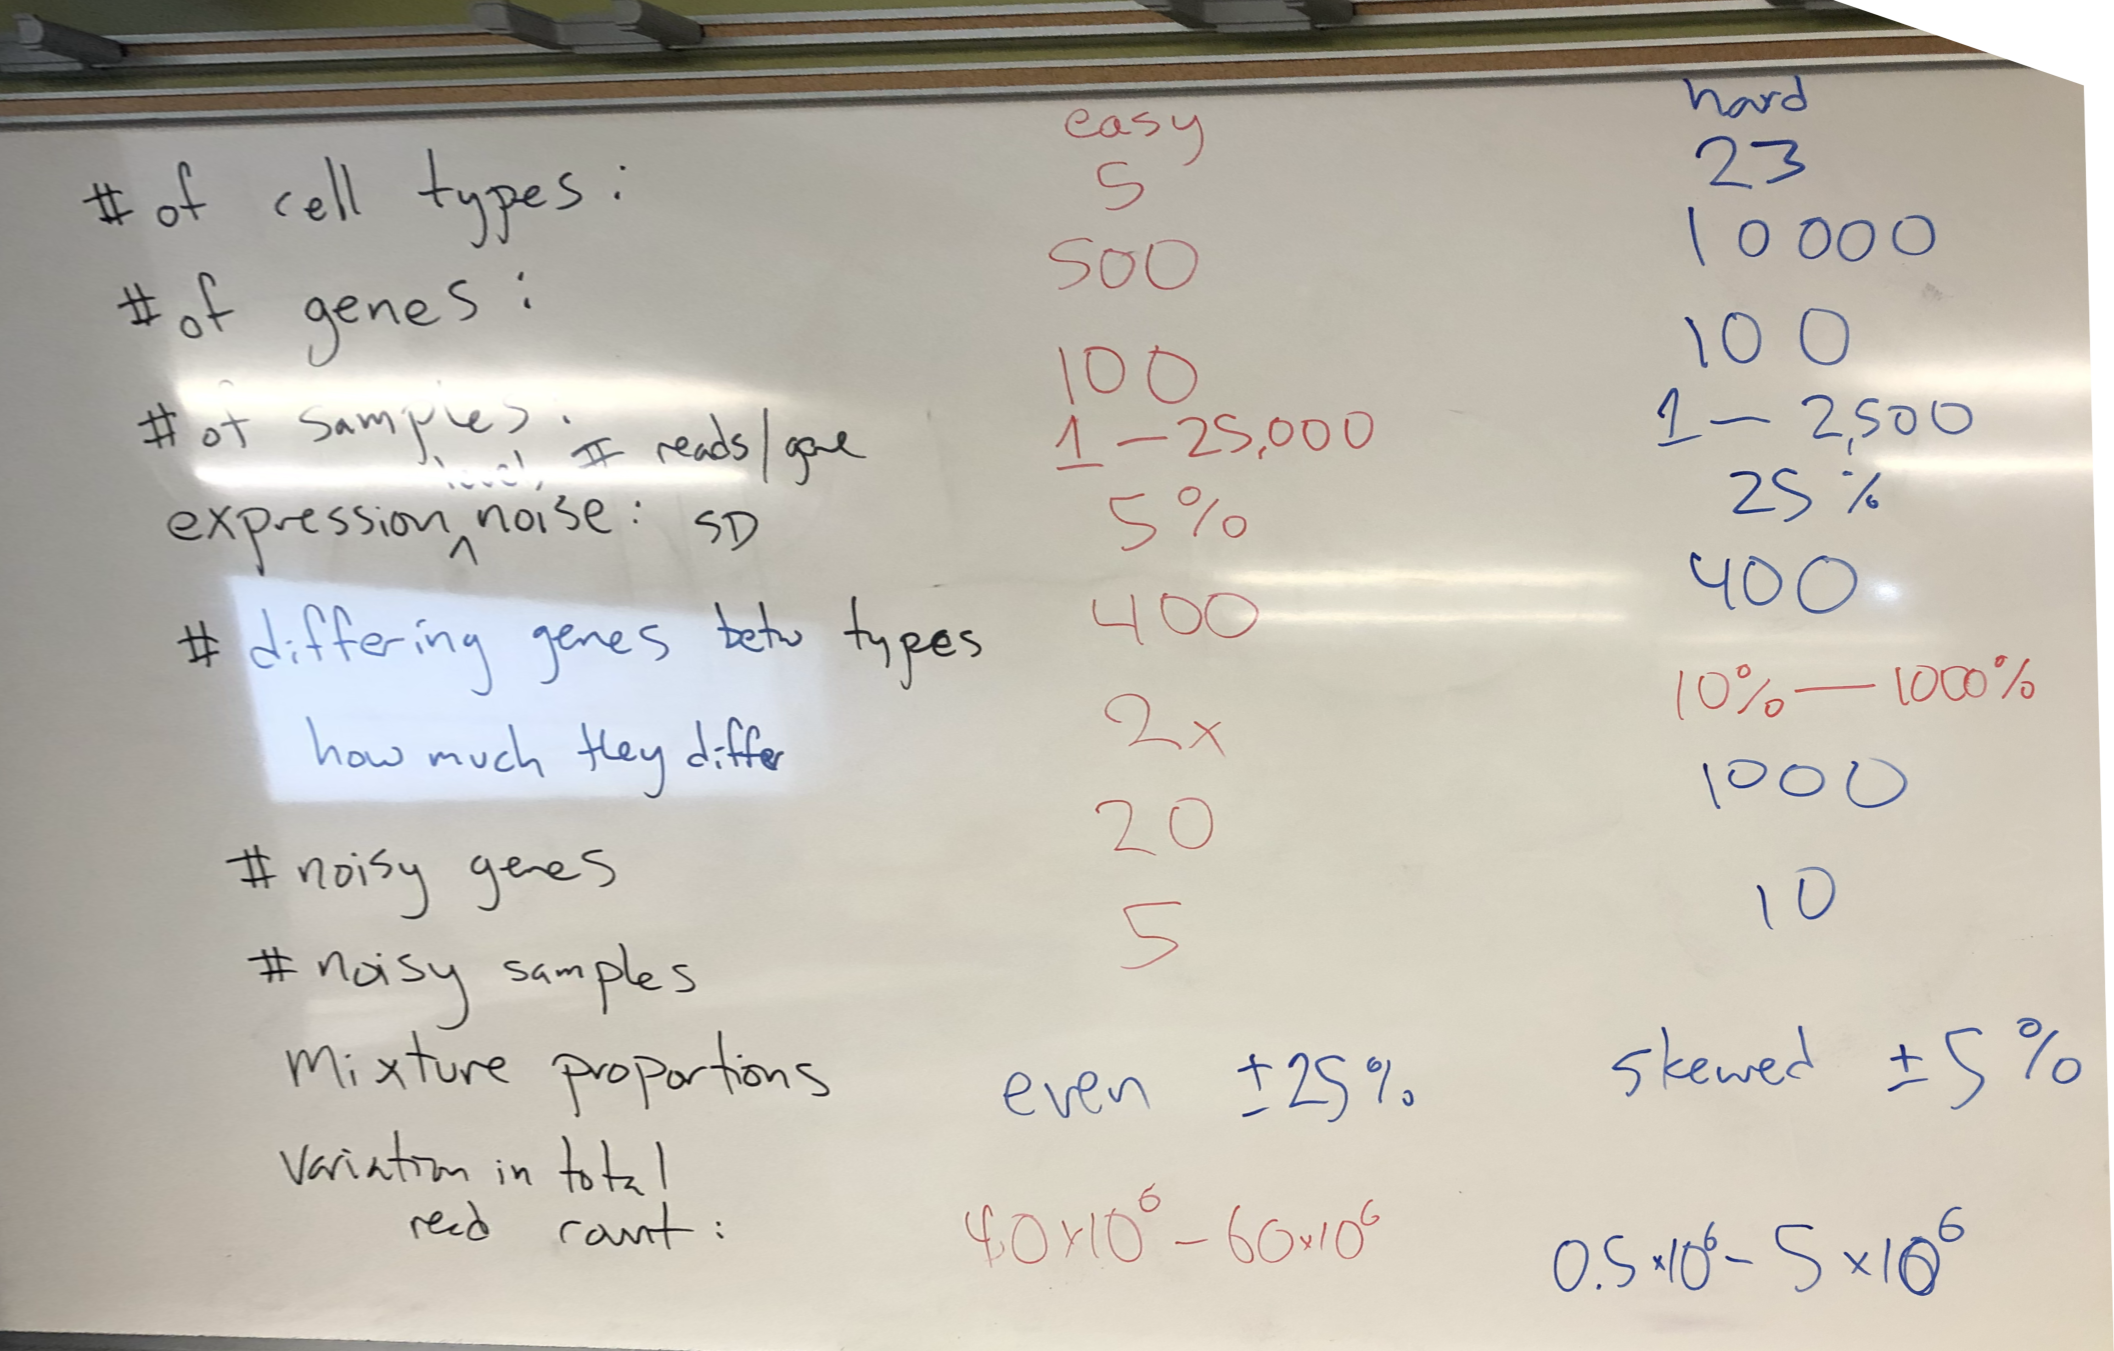 easy hard
# of cell types: 5 23
# of genes: 500 10000
# of samples: 100 100
# reads/gene 1 - 25,000 1 - 2,500
expression ^ noise: SD 5% 25%
# differing genes betw types 400 400
how much they differ 2x 10% - 1000%
# noisy genes 20 1000
# noisy samples 5 10
Mixture proportions even ±25% skewed ±5%
Variation in total
read count: 40x10⁶ - 60x10⁶ 0.5x10⁶ - 5x10⁶